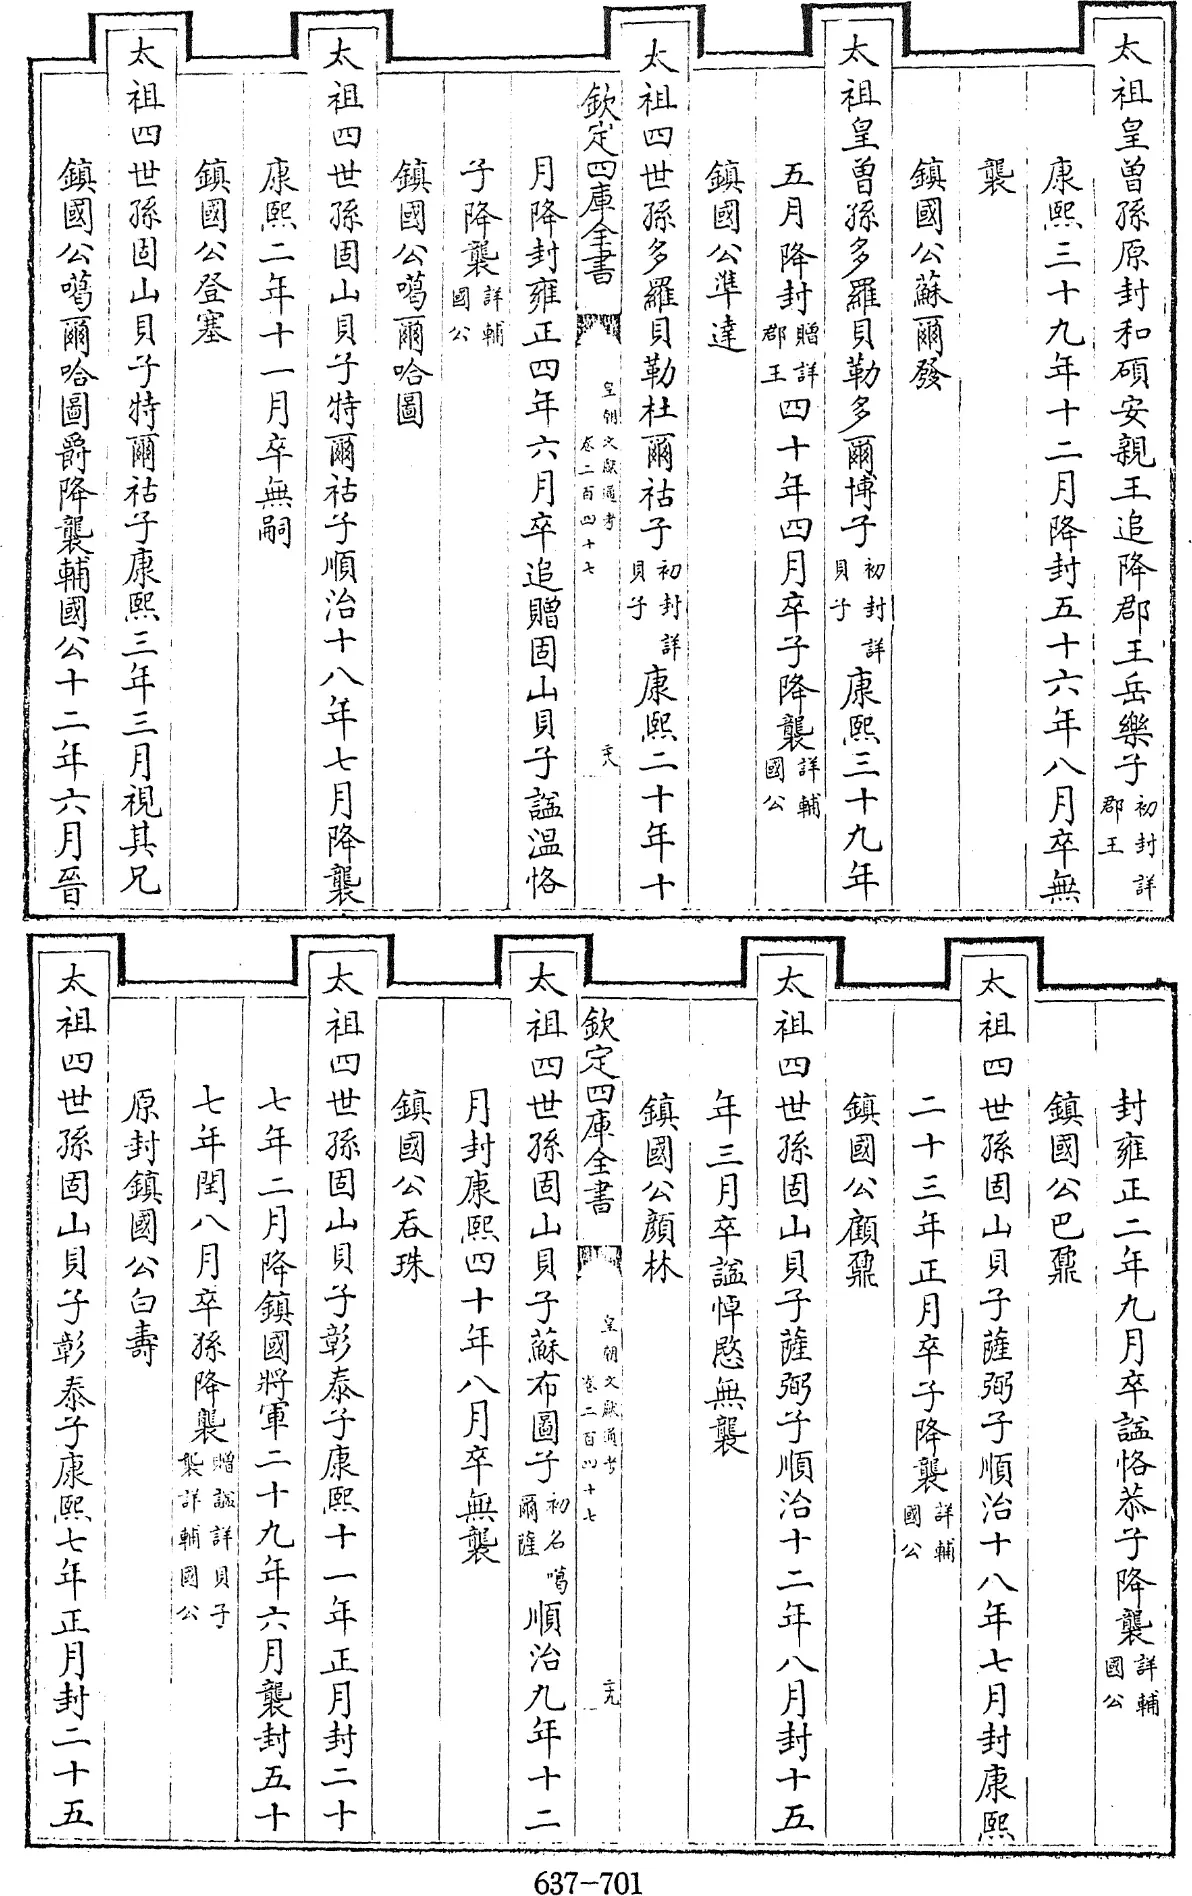 太祖皇曾孫原封和碩安親王追降郡王岳樂子初封詳郡王
康熙三十九年十二月降封五十六年八月卒無
襲
鎮國公蘇爾發
太祖皇曾孫多羅貝勒多爾博子初封詳貝子康熙三十九年
五月降封贈詳郡王四十年四月卒子降襲詳輔國公
鎮國公準達
太祖四世孫多羅貝勒杜爾祜子初封詳貝子康熙二十年十
欽定四庫全書 皇朝文獻通考卷二百四十七 二十八
月降封雍正四年六月卒追贈固山貝子諡温恪
子降襲詳輔國公
鎮國公噶爾哈圖
太祖四世孫固山貝子特爾祜子順治十八年七月降襲
康熙二年十一月卒無嗣
鎮國公登塞
太祖四世孫固山貝子特爾祜子康熙三年三月視其兄
鎮國公噶爾哈圖爵降襲輔國公十二年六月晉
封雍正二年九月卒諡恪恭子降襲詳輔國公
鎮國公巴鼐
太祖四世孫固山貝子薩弼子順治十八年七月封康熙
二十三年正月卒子降襲詳輔國公
鎮國公顧鼐
太祖四世孫固山貝子薩弼子順治十二年八月封十五
年三月卒諡悼愍無襲
鎮國公顏林
太祖四世孫固山貝子蘇布圖子初名噶爾薩順治九年十二
欽定四庫全書 皇朝文獻通考卷二百四十七 二十九
月封康熙四十年八月卒無襲
鎮國公吞珠
太祖四世孫固山貝子彰泰子康熙十一年正月封二十
七年二月降鎮國將軍二十九年六月襲封五十
七年閏八月卒孫降襲贈諡詳貝子襲詳輔國公
原封鎮國公白壽
太祖四世孫固山貝子彰泰子康熙七年正月封二十五
637-701